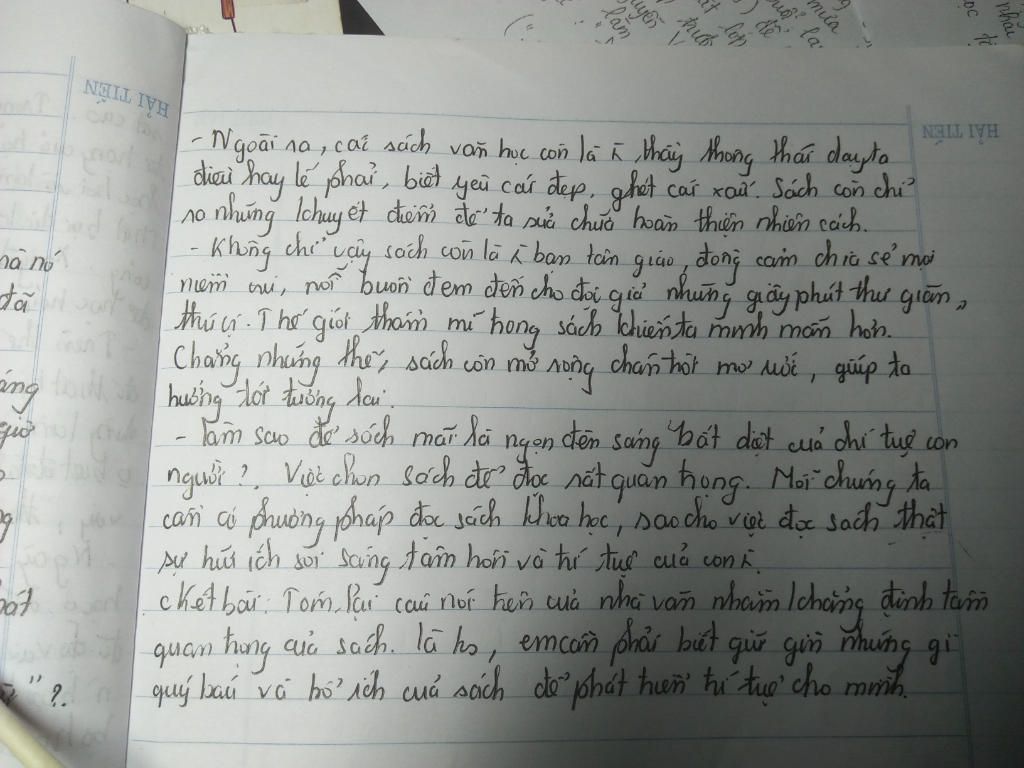 HẢI TIẾN
HẢI TIẾN
- Ngoài ra, các sách văn học còn là ք, thầy thong thái dạy ta
điều hay lẽ phải, biết yêu cái đẹp, ghét cái xấu. Sách còn chỉ
ra những khuyết điểm để ta sửa chữa hoàn thiện nhiên cách.
- Không chỉ vậy sách còn là bạn tân giao, đồng cảm chia sẻ mọi
niềm vui, nỗi buồn đem đến cho đọi giả những giây phút thư giãn,
thú vị. Thế giới thẩm mĩ trong sách khiến ta minh mẫn hơn.
Chẳng những thế, sách còn mở rộng chân trời mơ ước, giúp ta
hướng tới tương lai.
- Làm sao để sách mãi là ngọn đèn sáng bất diệt của chí tuệ con
người? Việc chọn sách để đọc rất quan trọng. Mỗi chúng ta
cần có phương pháp đọc sách khoa học, sao cho việc đọc sách thật
sự hữu ích soi sáng tâm hồn và trí tuệ của con
Kết bài: Tóm lại câu nói trên của nhà văn nhằm khẳng định tầm
quan trọng của sách. Là hs, em cần phải biết giữ gìn những gì
quý báu và bổ ích của sách để phát triển trí tuệ cho mình.